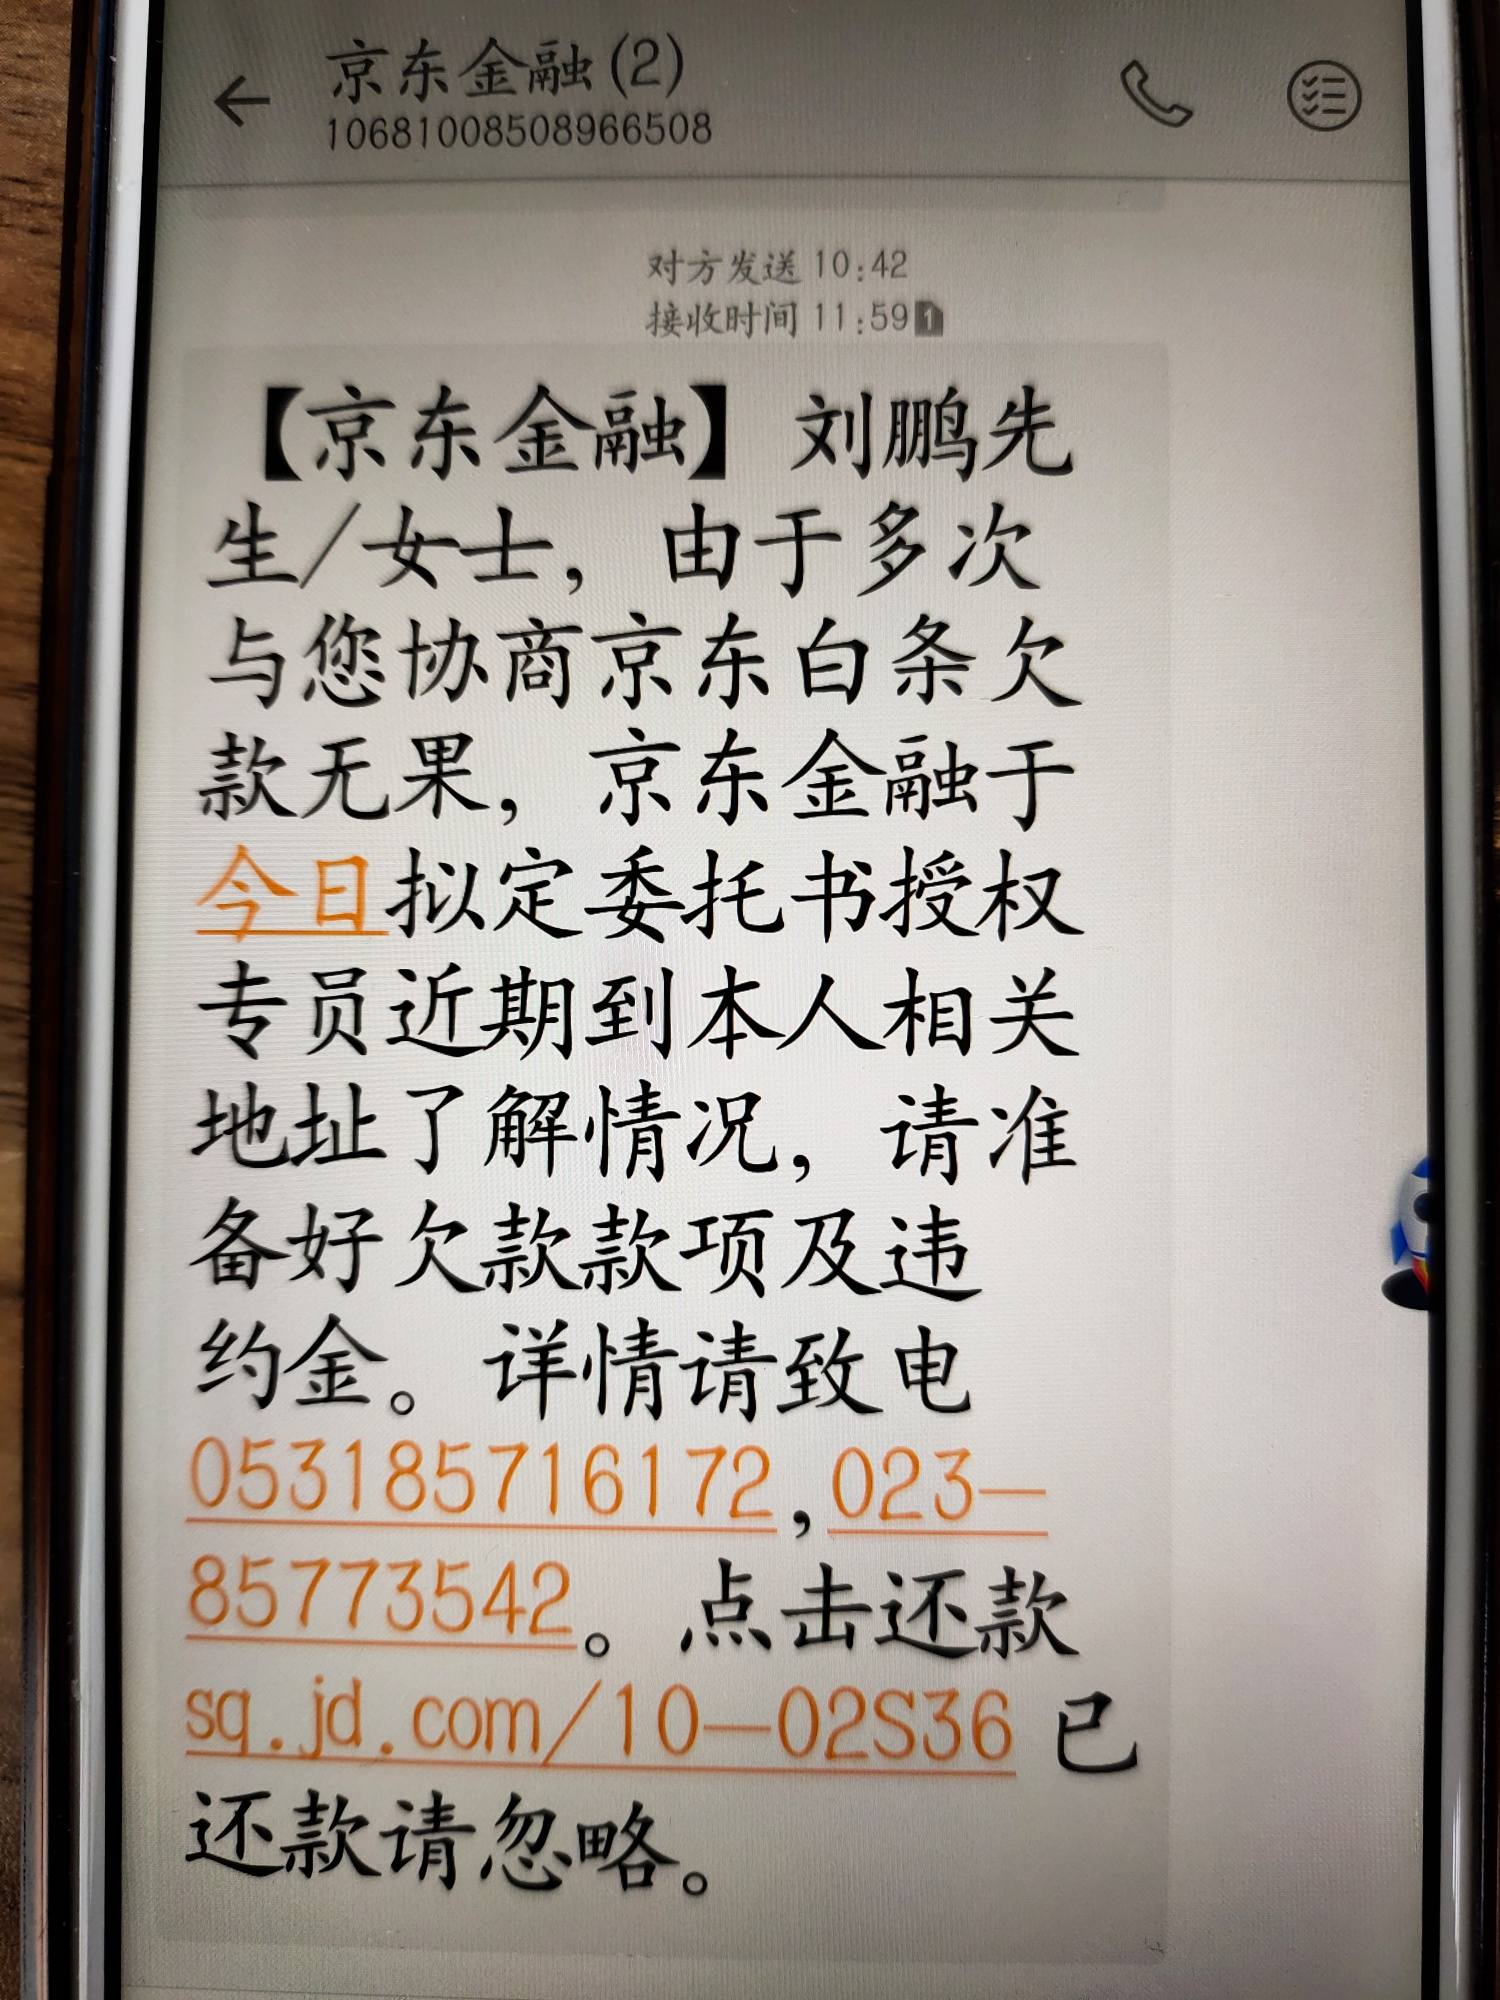 京东金融(2)
10681008508966508
对方发送 10:42
接收时间 11:59 1
【京东金融】刘鹏先
生/女士，由于多次
与您协商京东白条欠
款无果，京东金融于
今日拟定委托书授权
专员近期到本人相关
地址了解情况，请准
备好欠款款项及违
约金。详情请致电
053185716172,023-
85773542。点击还款
sq.jd.com/10-02S36 已
还款请忽略。